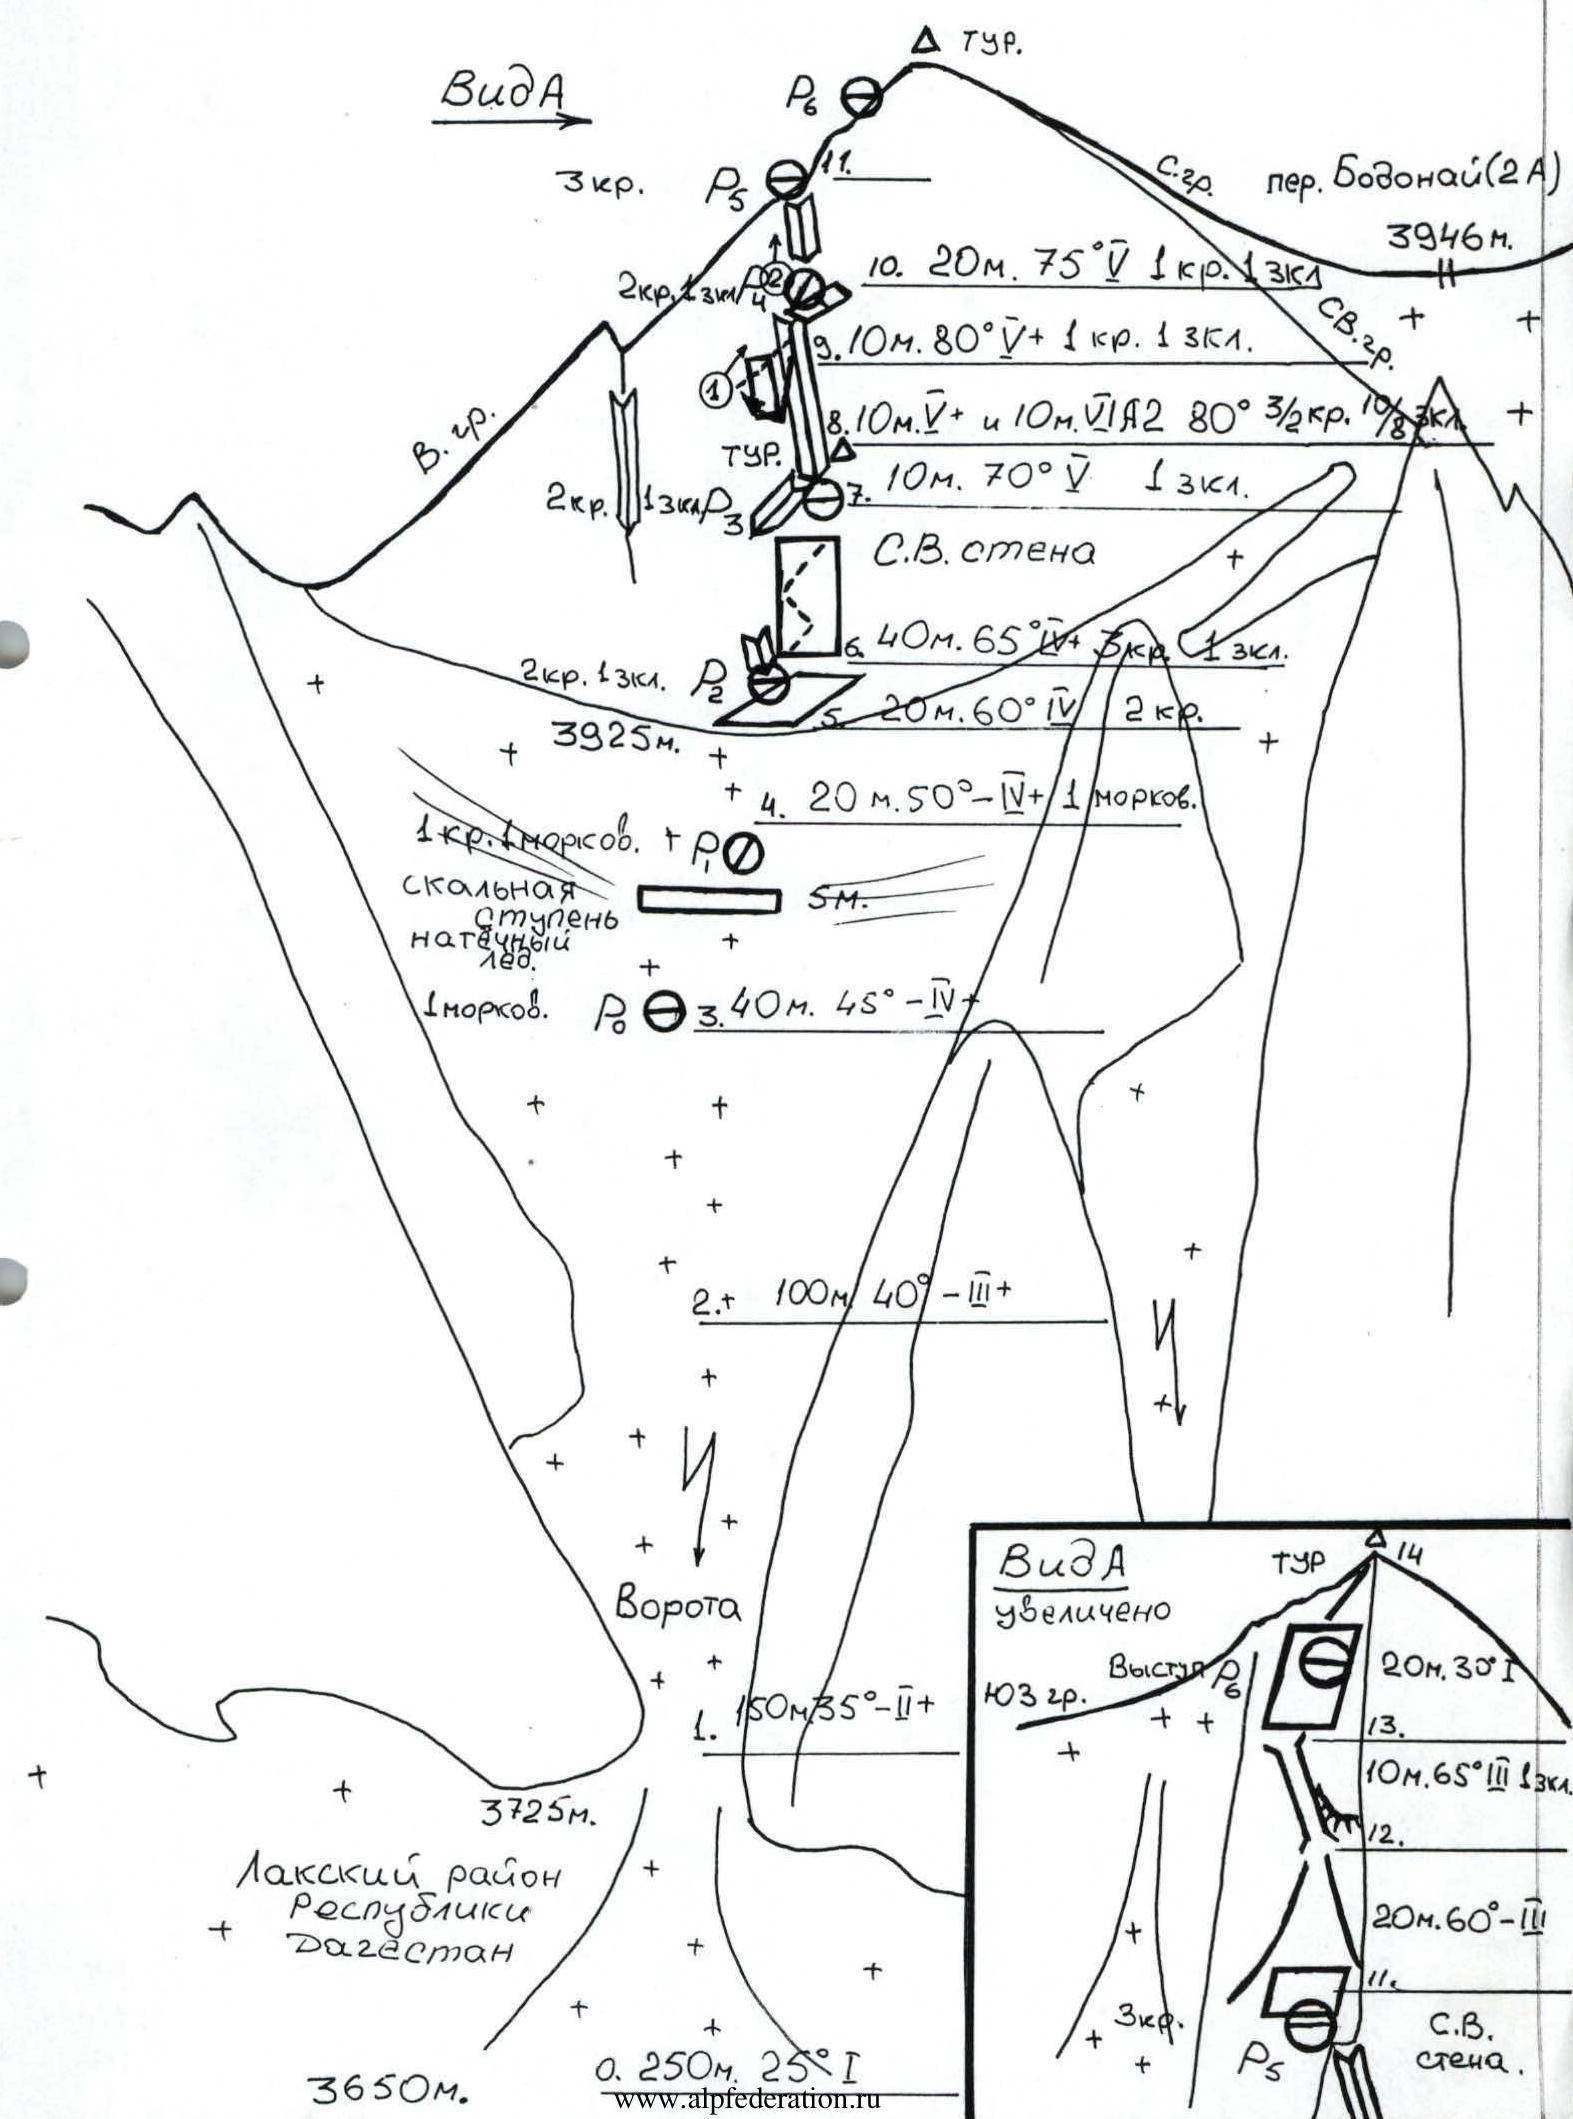 △ ТУР.
Вид А
Р6
11.
3 кр. Р5
С.гр. пер. Бодонай (2А)
3946м.
10. 20м. 75° V 1 кр. 1 зкл
2кр. 1 зкл Р4 2
СВ.гр.
9. 10м. 80° V+ 1 кр. 1 зкл.
1
8. 10м. V+ и 10м. VI А2 80° 3/2 кр. 10/8 зкл.
В. гр.
ТУР.
7. 10м. 70° V 1 зкл.
2кр. 1 зкл Р3
С.В. стена
6. 40м. 65° IV+ 3кр. 1 зкл.
2кр. 1 зкл. Р2
5. 20м. 60° IV 2 кр.
3925м.
4. 20 м. 50° - IV+ 1 морков.
1 кр. 1 морков. Р1
скальная 5м.
ступень
натёчный
лёд.
1 морков. Р0 3. 40м. 45° - IV+
2. 100м 40° - III+
Ворота
1. 150м 35° - II+
3725м.
Лакский район
Республики
Дагестан
0. 250м. 25° I
3650м.
www.alpfederation.ru
Вид А
увеличено
ТУР 14
Выступ Р6 20м. 30° I
ЮЗ гр.
13.
10м. 65° III 1 зкл.
12.
20м. 60° - III
11.
3кр.
Р5 С.В.
стена.